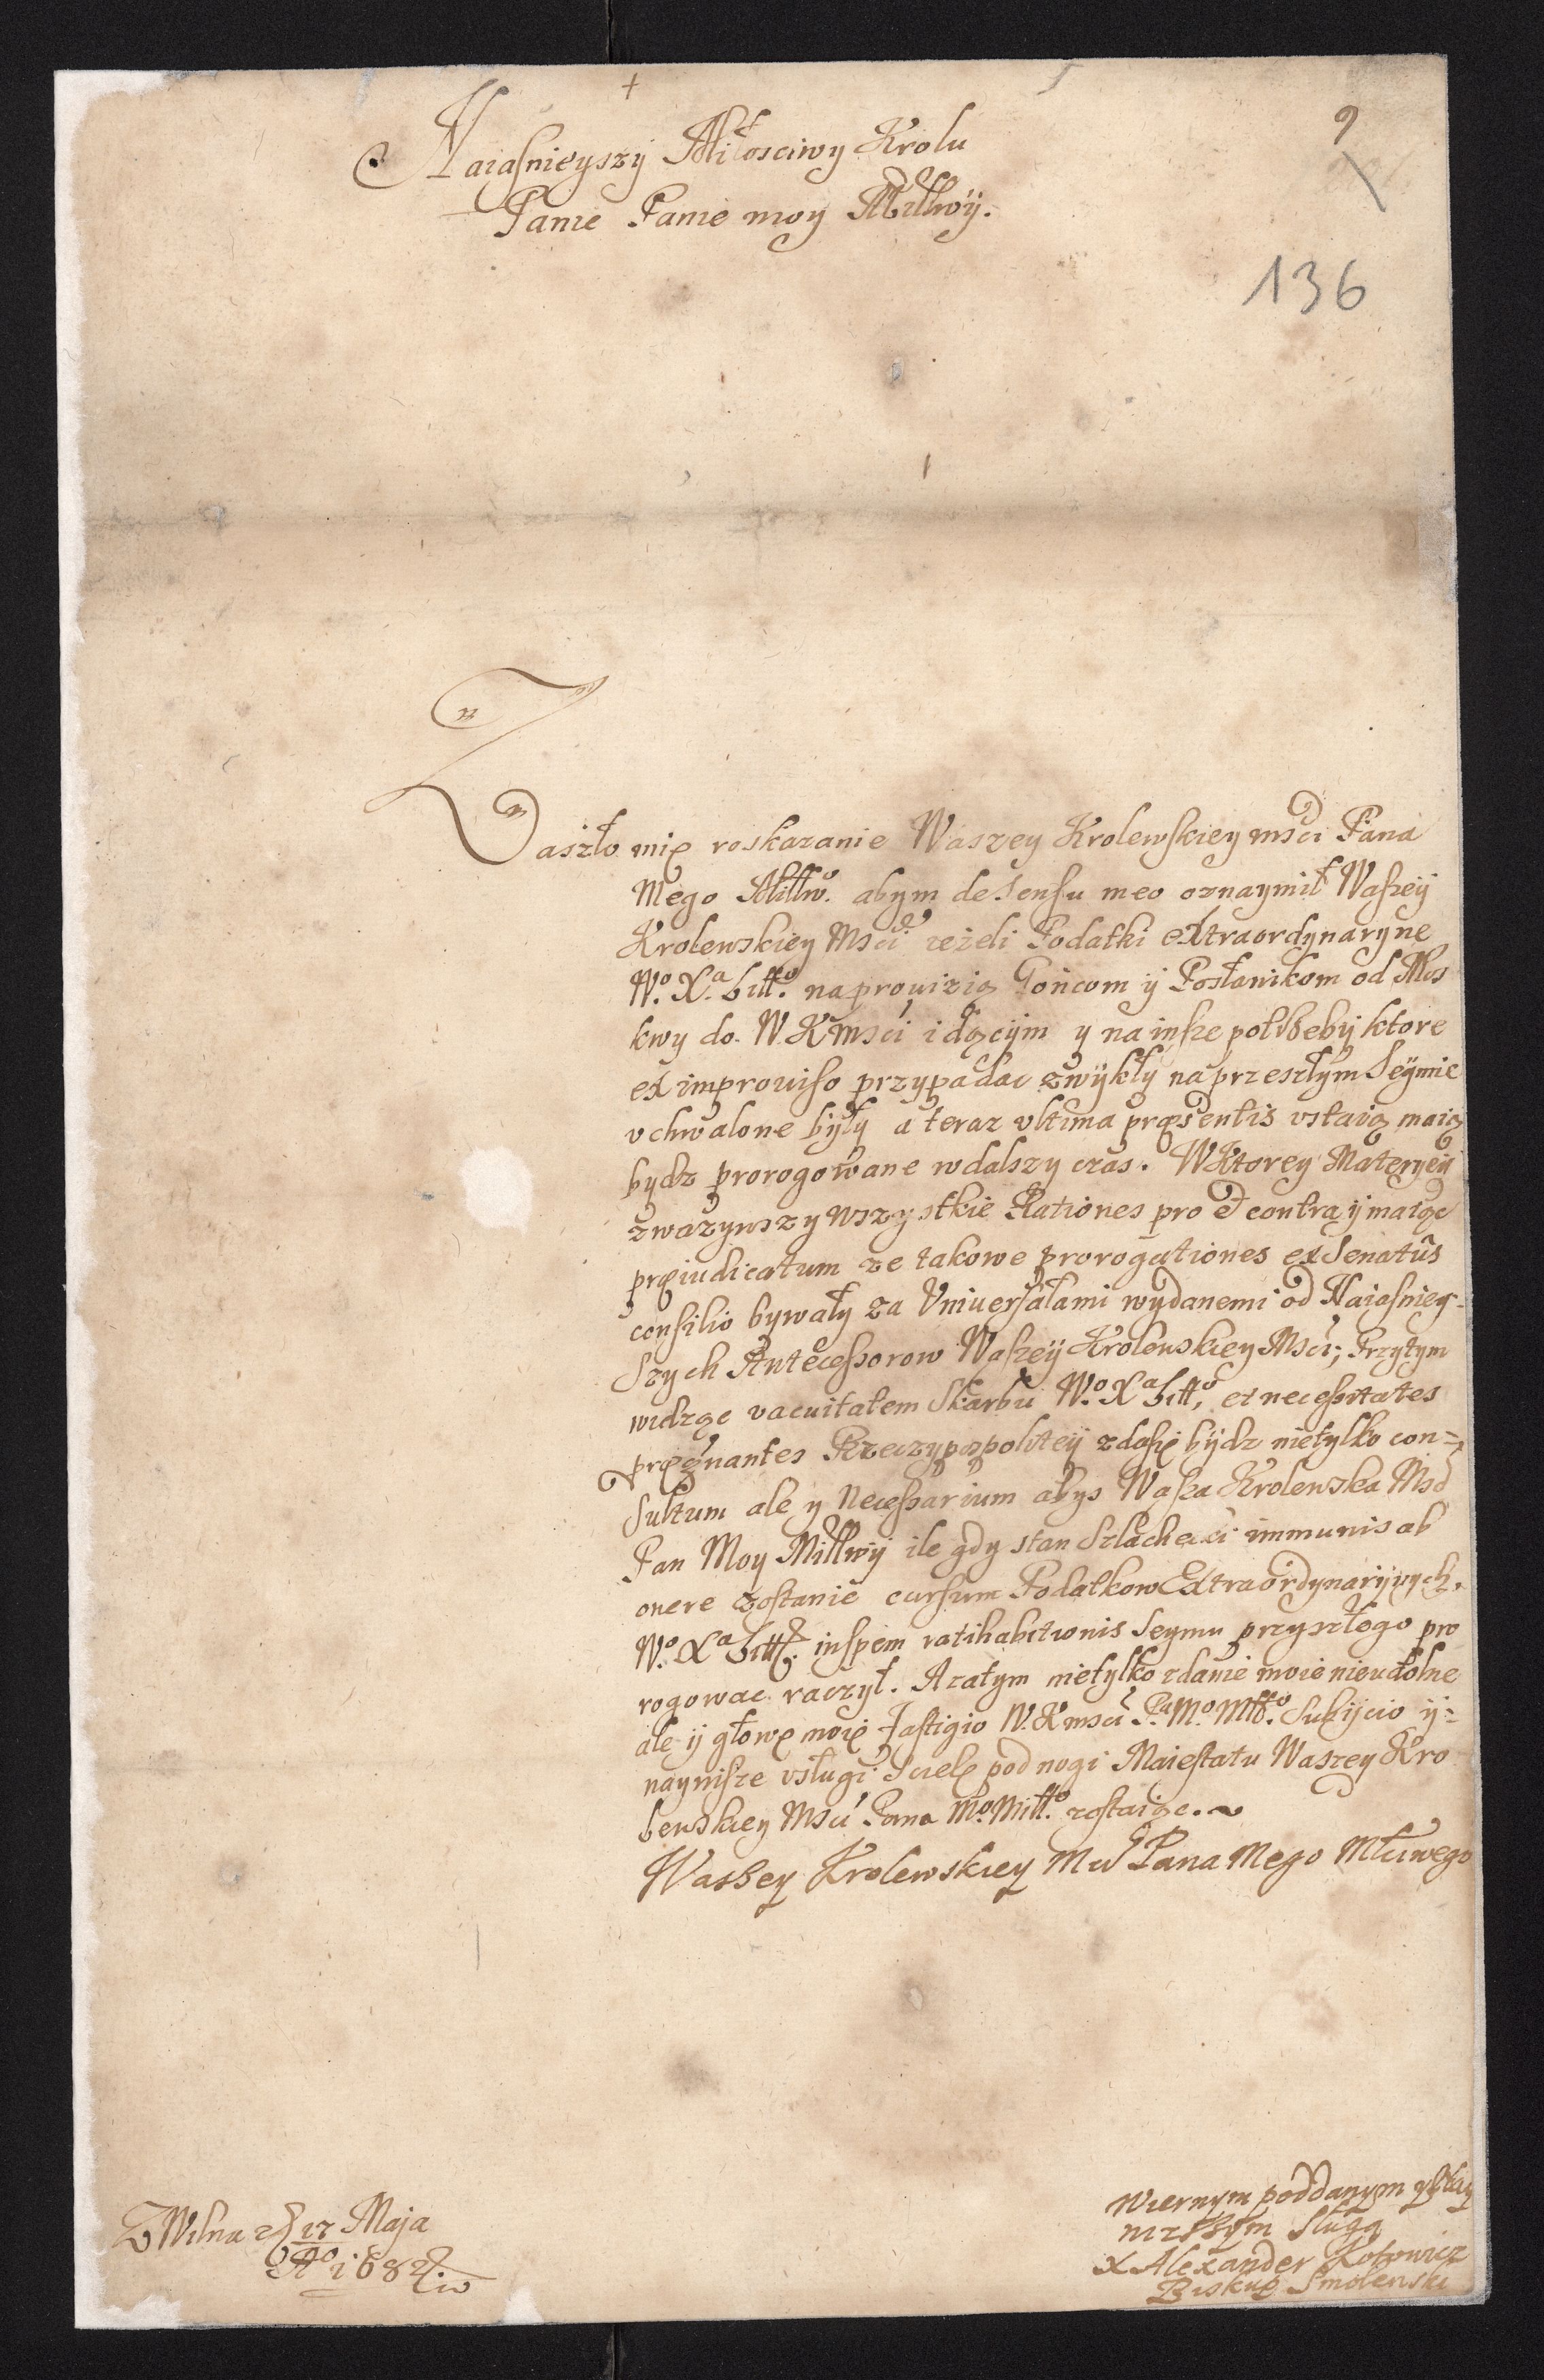 +
9
Naiaśnieyszy Miłosciwy Krolu
Panie Panie moy Miłłwÿ.
136
Zaszło mię roskazanie Waszey Krolewskiey msći Pana
Mego Miłłwº. abym de sensu meo oznaymił Waszeÿ
Krolewskiey Msći ieżeli Podatki extraordynaryine
Wº. Xª. Littº. na prouizią Gońcom ÿ Posłanikom od Mos
kwy do W. K msći idącÿm y na insze potrzebÿ ktore
ex improuiso przypadac zwÿkłÿ na przeszłym Seÿmie
vchwalone bÿłÿ a teraz vltima præsentis vstaią maią
bydz prorogowane w dalszy czas. W Ktorey Materyeÿ
zwazywszy wszystkie Rationes pro et contra ÿ maiąc
præiudicatum ze takowe prorogationes ex Senatûs
consilio bywały za Vniuersałami wydanemi od Naiaśniey-
szych Antecessorow Waszeÿ Krolewskiey Msći; Przytym
widząc vacuitatem Skarbu Wº. Xª Littº, et necessitates
prægnantes Rzeczypospoliteÿ zda się bÿdz nietylko con=
sultum ale y Necessarium abys Wasza Krolewska Msć
Pan Moy Miłłwÿ ile gdy stan Szlachecki immunis ab
onere zostanie cursum Podatkow Extraordynarÿinych
Wº. Xª Litt. in spem ratihabitionis Seymu przyszłego pro
rogowac raczył. A zatym nietylko zdanie moie nieudolne
ale ÿ głowę moię Fastigio W. K msći Pª. Mº. Młłº. Subÿcio ÿ=
naynisze vsługi Scielę pod nogi Maiestatu Waszey Kro
lewskiey Msći Pana Mº. Miłłº. zostaiąc.
Waszey Krolewskiey Mći Pana Mego Młćiwego
Wiernym poddanym y
nizszym sługą
X Alexander Kotowicz
Biskup Smolenski
Z Wilna d 17 Maja
Aº 1682